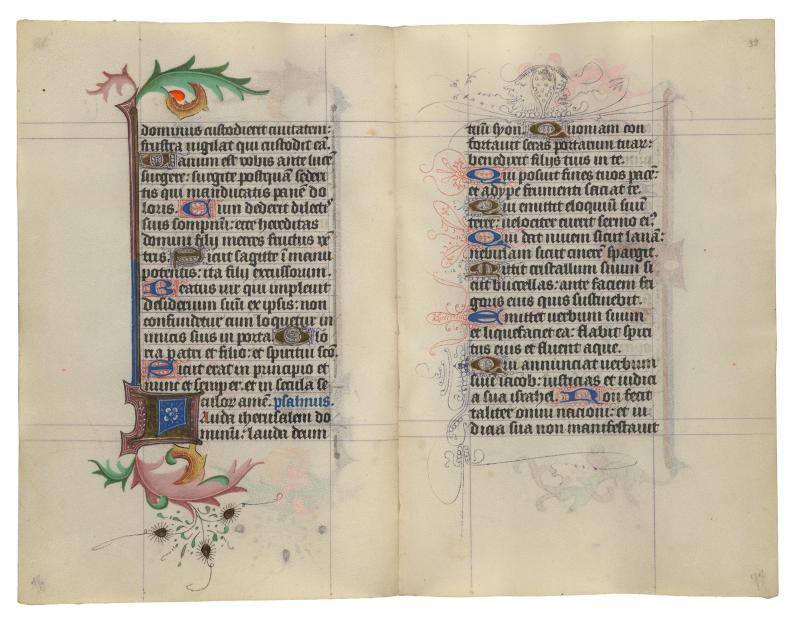 dominus custodierit ciuitatem:
frustra uigilat qui custodit eā.
Uanum est vobis ante lucē
surgere: surgite postquā seder
tis qui manducatis panē do
loris. Cum dederit dilectis
suis sompnū: ecce hereditas
domini filij merces fructus vē
tris. Sicut sagitte ī manu
potentis: ita filij excussorum.
Beatus vir qui impleuit
desiderium suū ex ipsis: non
confundetur cum loquetur in
imicis suis in porta. Glo
ria patri et filio: et spiritui scō.
Sicut erat in principio et
nunc et semper. et in secula se
culor amē. psalmus.
Lauda iherusalem do
minū: lauda deum
38
tuū syon. Quoniam con
fortauit seras portarum tuar:
benedixit filijs tuis in te.
Qui posuit fines tuos pacē:
et adype frumenti saciat te.
Qui emittit eloquiū suū
terre: uelociter currit sermo ei9
Qui dat niuem sicut lanā:
nebulam sicut cinerē spargit.
Mittit cristallum suum si
cut buccellas: ante faciem fri
goris eius quis sustinebit.
Emittet uerbum suum
et liquefaciet ea: flabit spiri
tus eius et fluent aque.
Qui annunciat uerbum
suū iacob: iusticias et iudici
a sua israhel. Non fecit
taliter omni nacioni: et iu
dicia sua non manifestauit